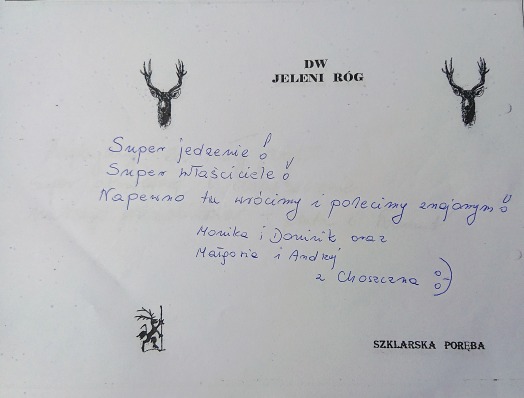 DW
JELENI RÓG
Super jedzenie!
Super właściciele!
Napewno tu wrócimy i polecimy znajomym!
Monika i Dominik oraz
Małgosia i Andrzej
z Choszczna :)
SZKLARSKA PORĘBA